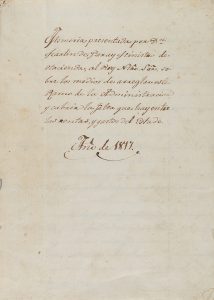 Memoria presentada por Dn.
Martin de Garay Ministro de
Hacienda, al Rey Ntro. Sor. so-
bre los medios de arreglar este
Ramo de la Administracion
y cubrir la falta que hay entre
las rentas, y gastos del Estado
Año de 1817.